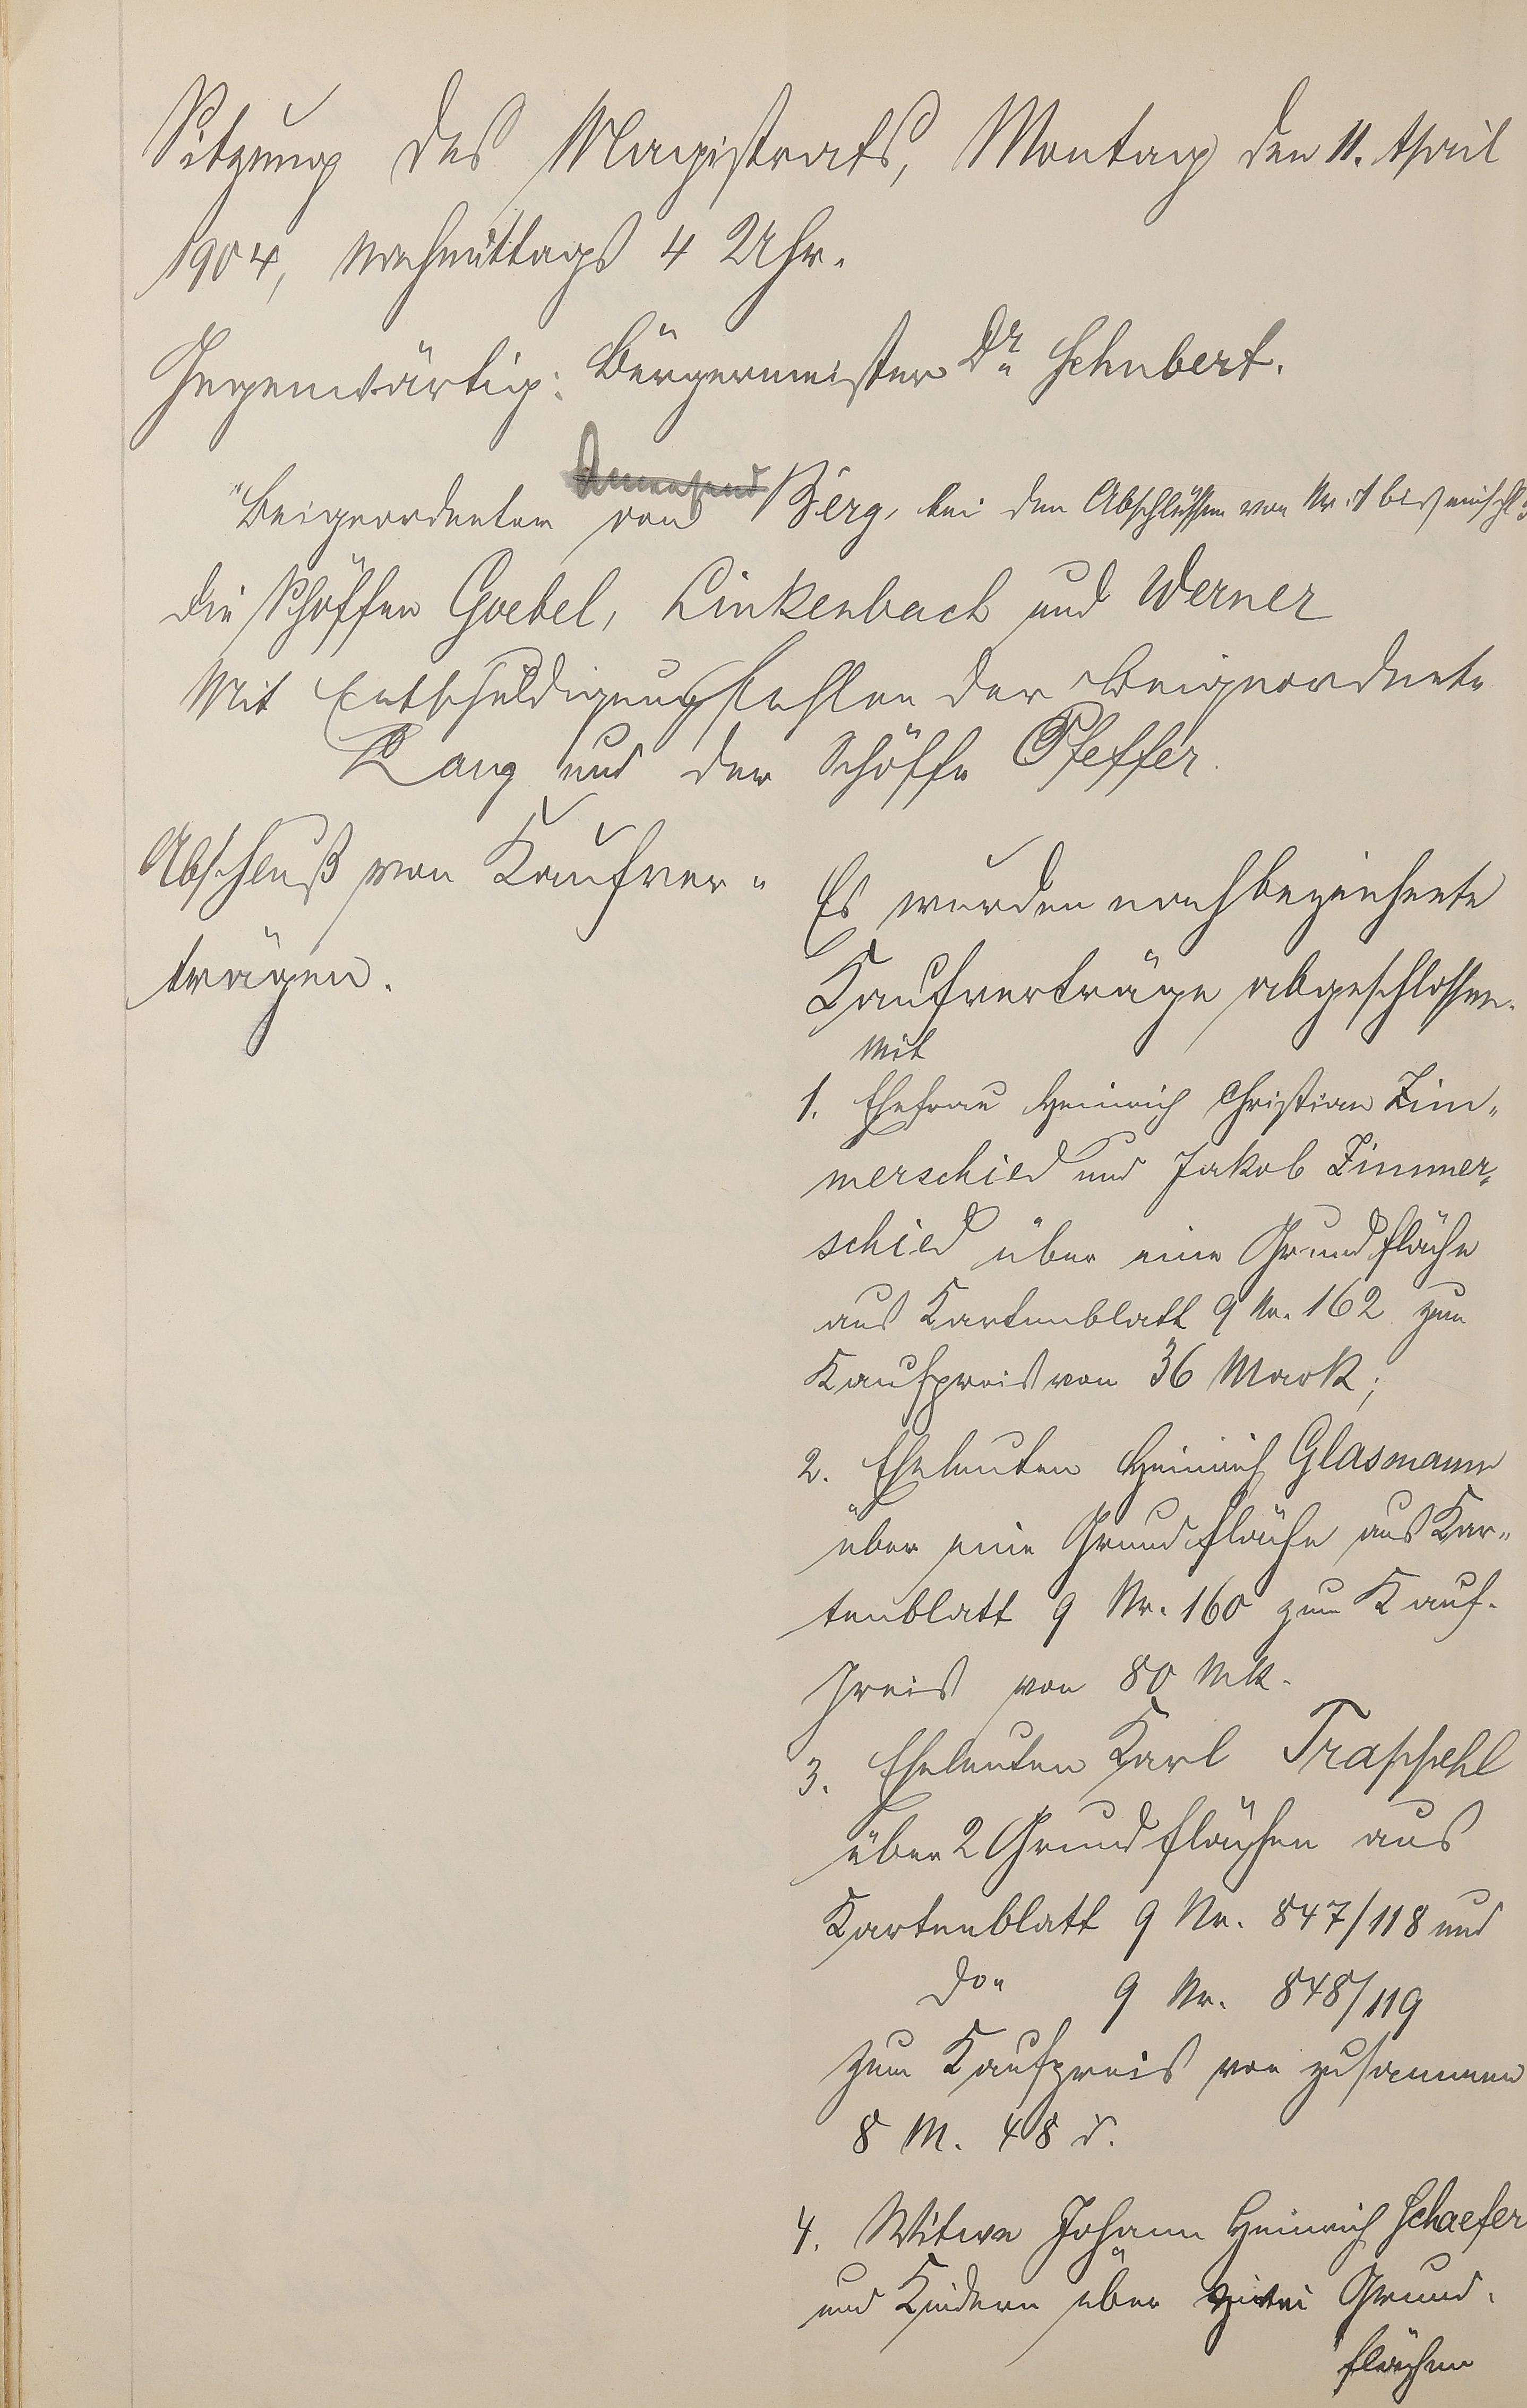 Sitzung des Magistrats, Montag den 11. April
1904, Nachmittags 4 Uhr.
Gegenwärtig: Bürgermeister Dr. Schubert.
Beigeordneter von Berg, bei den Abschlüssen von Nr. 1 bis einschl.
die Schöffen Goebel, Linkenbach und Werner
Mit Entschuldigung fehlen der Beigeordnete
Lang und der Schöffe Pfeffer.
Abschluß von Kaufver-
trägen.
Es wurden nachbezeichnete
Kaufverträge abgeschlossen.
mit
1. Ehefrau Heinrich Christian Zim-
merschied und Jakob Zimmer-
schied über eine Grundfläche
aus Kartenblatt 9 Nr. 162 zum
Kaufpreis von 36 Mark;
2. Eheleuten Heinrich Glasmann
über eine Grundfläche aus Kar-
tenblatt 9 Nr. 160 zum Kauf-
preis von 80 Mk.
3. Eheleuten Karl Trappehl
über 2 Grundflächen aus
Kartenblatt 9 Nr. 847/118 und
do. 9 Nr. 848/119
zum Kaufpreis von zusammen
8 M. 48 ₰.
4. Witwe Johann Heinrich Schaefer
und Kindern über zwei Grund-
flächen